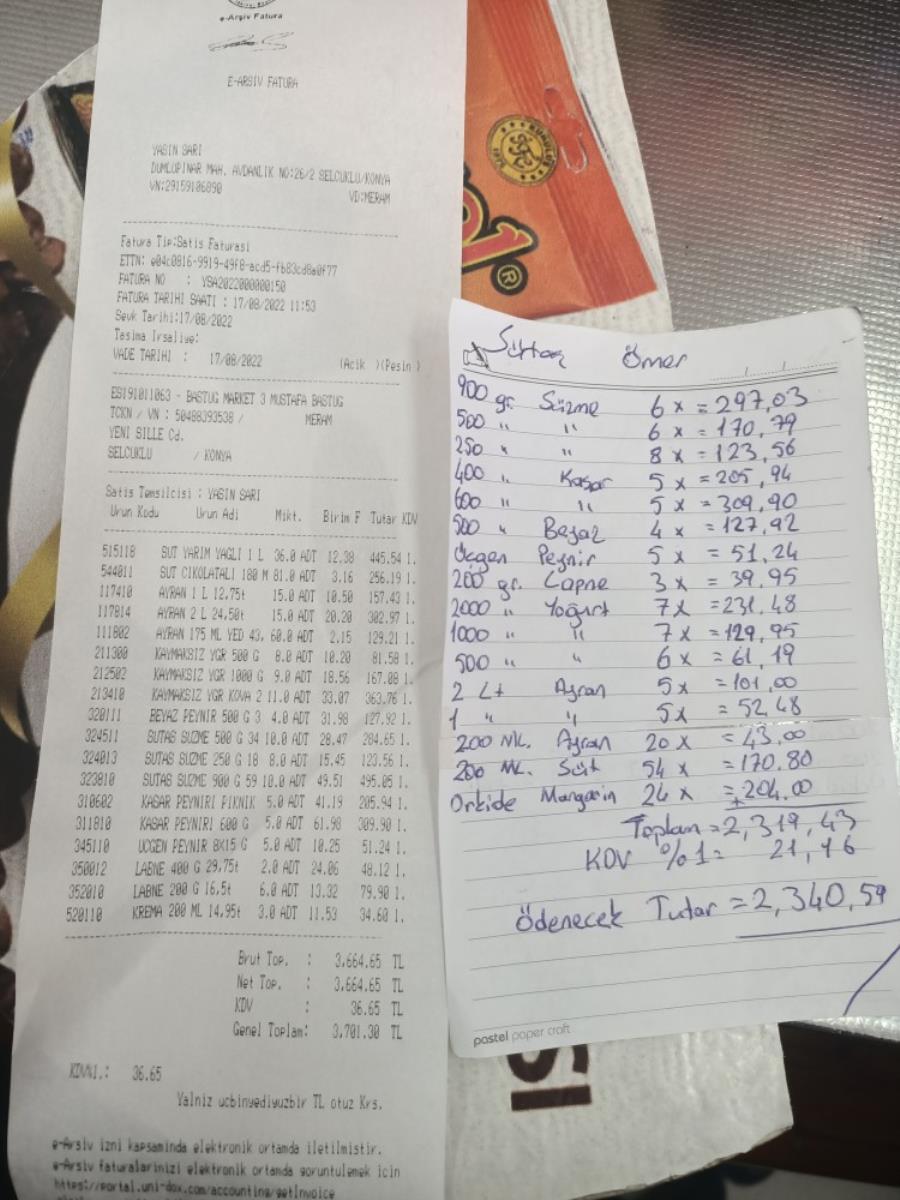 e-Arşiv Fatura
E-ARSIV FATURA
YASIN SARI
DUMLUPINAR MAH. AVDANLIK NO:26/2 SELCUKLU/KONYA
VN:29159106890 VD:MERAM
Fatura Tip:Satis Faturasi
ETTN: e04c0816-9919-49f8-acd5-fb83cd8a0f77
FATURA NO : YSA2022000000150
FATURA TARIHI SAATI : 17/08/2022 11:53
Sevk Tarihi:17/08/2022
Tasima Irsaliye:
VADE TARIHI : 17/08/2022 (Acik )(Pesin )
ES191011063 - BASTUG MARKET 3 MUSTAFA BASTUG
TCKN / VN : 50488393538 / MERAM
YENI SILLE Cd.
SELCUKLU / KONYA
Satis Temsilcisi : YASIN SARI
Urun Kodu Urun Adi Mikt. Birim F Tutar KDV
515118 SUT YARIM YAGLI 1 L 36.0 ADT 12.38 445.54 1.
544011 SUT CIKOLATALI 180 M 81.0 ADT 3.16 256.19 1.
117410 AYRAN 1 L 12,75t 15.0 ADT 10.50 157.43 1.
117814 AYRAN 2 L 24,50t 15.0 ADT 20.20 302.97 1.
111802 AYRAN 175 ML YED 43, 60.0 ADT 2.15 129.21 1.
211300 KAYMAKSIZ YGR 500 G 8.0 ADT 10.20 81.58 1.
212502 KAYMAKSIZ YGR 1000 G 9.0 ADT 18.56 167.08 1.
213410 KAYMAKSIZ YGR KOVA 2 11.0 ADT 33.07 363.76 1.
320111 BEYAZ PEYNIR 500 G 3 4.0 ADT 31.98 127.92 1.
324511 SUTAS SUZME 500 G 34 10.0 ADT 28.47 284.65 1.
324013 SUTAS SUZME 250 G 18 8.0 ADT 15.45 123.56 1.
323810 SUTAS SUZME 900 G 59 10.0 ADT 49.51 495.05 1.
310602 KASAR PEYNIRI PIKNIK 5.0 ADT 41.19 205.94 1.
311810 KASAR PEYNIRI 600 G 5.0 ADT 61.98 309.90 1.
345110 UCGEN PEYNIR 8X15 G 5.0 ADT 10.25 51.24 1.
350012 LABNE 400 G 29,75t 2.0 ADT 24.06 48.12 1.
352010 LABNE 200 G 16,5t 6.0 ADT 13.32 79.90 1.
520110 KREMA 200 ML 14,95t 3.0 ADT 11.53 34.60 1.
Brut Top. : 3,664.65 TL
Net Top. : 3,664.65 TL
KDV : 36.65 TL
Genel Toplam: 3,701.30 TL
KDV%1.: 36.65
Yalniz ucbinyediyuzbir TL otuz Krs.
e-Arsiv izni kapsaminda elektronik ortamda iletilmistir.
e-Arsiv faturalarinizi elektronik ortanda goruntulemek icin
https://portal.uni-dox.com/accounting/getInvoice
Sütaş Ömer
900 gr. Süzme 6 x = 297,03
500 " " 6 x = 170,79
250 " " 8 x = 123,56
400 " Kaşar 5 x = 205,94
600 " " 5 x = 309,90
500 " Beyaz 4 x = 127,92
Üçgen Peynir 5 x = 51,24
200 gr. Lapne 3 x = 39,95
2000 " Yoğurt 7 x = 231,48
1000 " " 7 x = 129,95
500 " " 6 x = 61,19
2 Lt Ayran 5 x = 101,00
1 " " 5 x = 52,48
200 ML. Ayran 20 x = 43,00
200 ML. Süt 54 x = 170.80
Orkide Margarin 24 x = 204,00
+
Toplam = 2,319,43
KDV %1 = 21,16
Ödenecek Tutar = 2,340,59
pastel paper craft